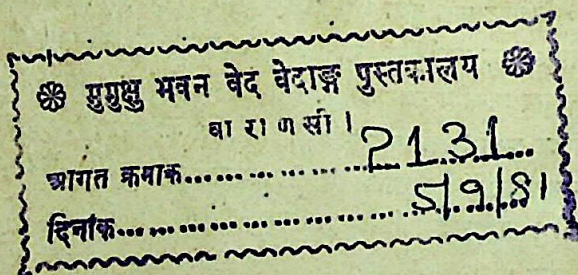 ❀ मुमुक्षु भवन वेद वेदाङ्ग पुस्तकालय ❀
वा रा ण सी ।
आगत क्रमाक........................2131...
दिनांक........................5/9/81